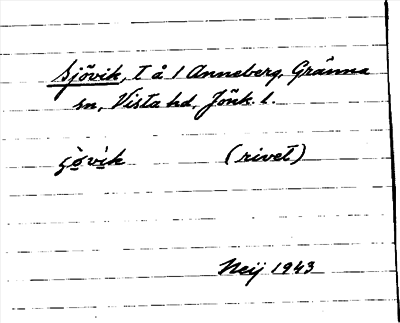 Sjövik, T å 1 Anneberg, Gränna
sn, Vista hd, Jönk. l.
(rivet)
Neij 1943